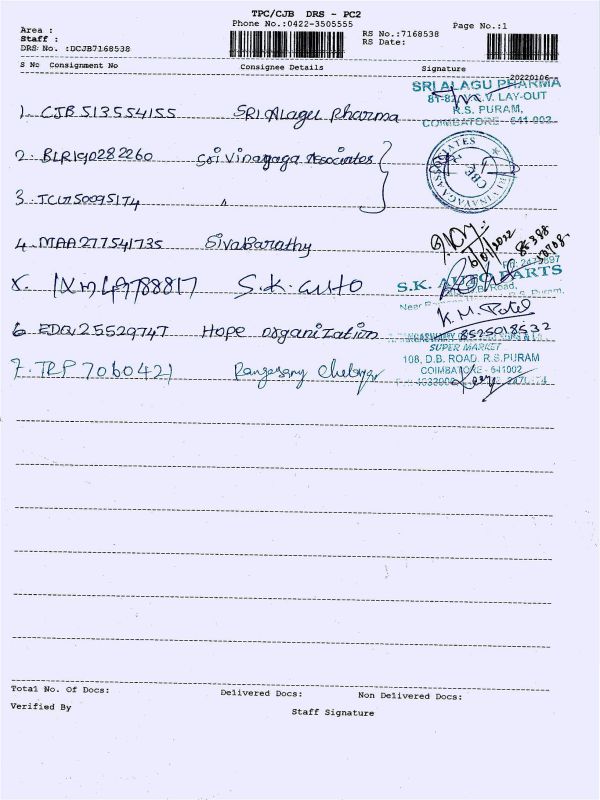 TPC/CJB DRS - PC2
Phone No.:0422-3505555
Page No.:1
Area :
Staff :
DRS No. :DCJB7168538
RS No.:7168538
RS Date:
S No Consignment No Consignee Details Signature
20220106
1. CJB 513554155 SRI Alagu Pharma
SRI ALAGU PHARMA
V. LAY-OUT
R.S. PURAM,
COIMBATORE - 641 002
2. BLR190282260 Sri Vinayaga Associates
CBE
3.
4. MAA277541735 Sivabarathy
6/01/2022
5. S.K. auto
S.K. AUTO PARTS
K. M. Patel
6. EDQ25529747 Hope organization
8525018532
SUPER MARKET
108, D.B. ROAD. R.S.PURAM
COIMBATORE - 641002
7. TRP 7060421 Rangasamy
Total No. Of Docs: Delivered Docs: Non Delivered Docs:
Verified By Staff Signature